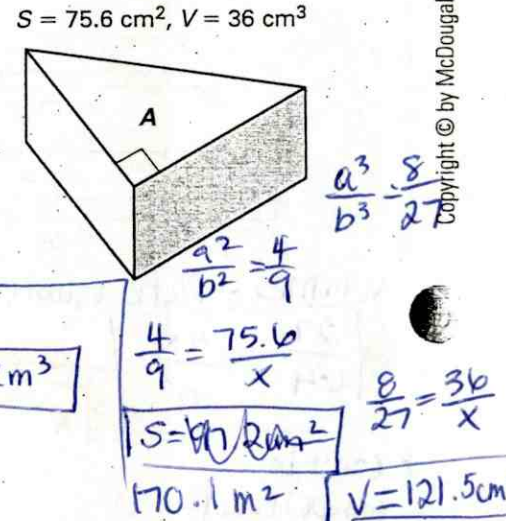 S = 75.6 cm², V = 36 cm³
Copyright © by McDougal
A
a³/b³ = 8/27
a²/b² = 4/9
4/9 = 75.6/x
m³
8/27 = 36/x
S =
170.1 m²
V = 121.5 cm